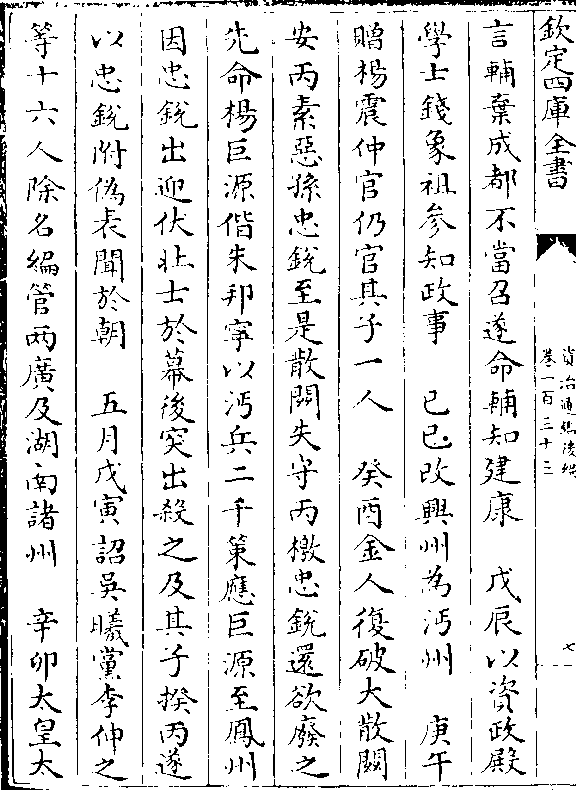 欽定四庫全書
資治通鑑後編
卷一百三十三
七
言輔棄成都不當召遂命輔知建康　戊辰以資政殿
學士錢象祖參知政事　己巳改興州為沔州　庚午
贈楊震仲官仍官其子一人　癸酉金人復破大散關
安丙素惡孫忠銳至是散關失守丙檄忠銳還欲廢之
先命楊巨源偕朱邦寧以沔兵二千策應巨源至鳳州
因忠銳出迎伏壯士於幕後突出殺之及其子揆丙遂
以忠銳附偽表聞於朝　五月戊寅詔吳曦黨李仲之
等十六人除名編管兩廣及湖南諸州　辛卯太皇太